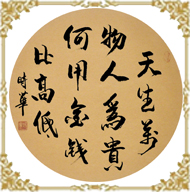 天生萬
物人爲貴
何用金錢
比高低
時草